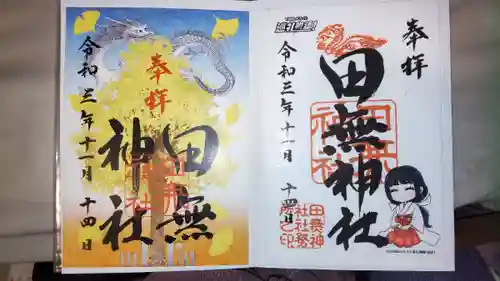 奉拝
田無
神社
令和三年十一月十四日
奉拝
田無神社
令和三年十一月十四日
田無神
社社務
所之印